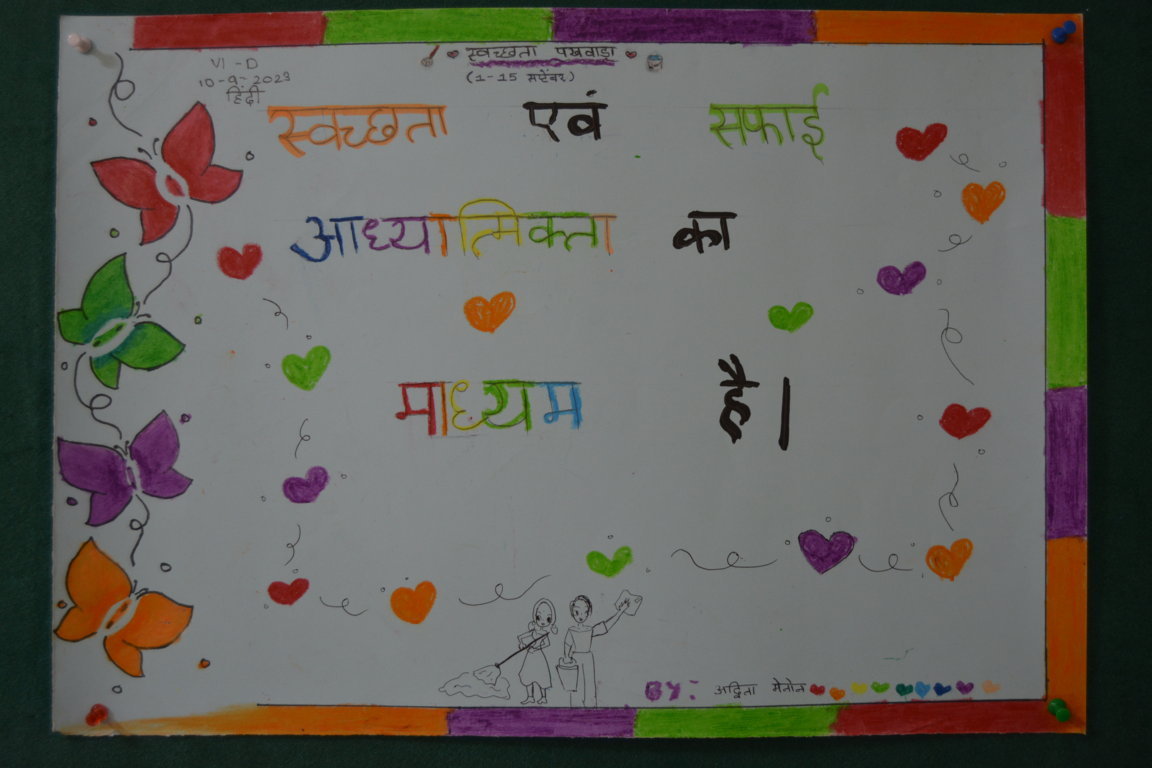 स्वच्छता पखवाड़ा
(1-15 सप्टेंबर)
VI-D
10-9-2023
हिंदी
स्वच्छता एवं सफाई
आध्यात्मिकता का
माध्यम है।
BY: अद्विता मेनोन